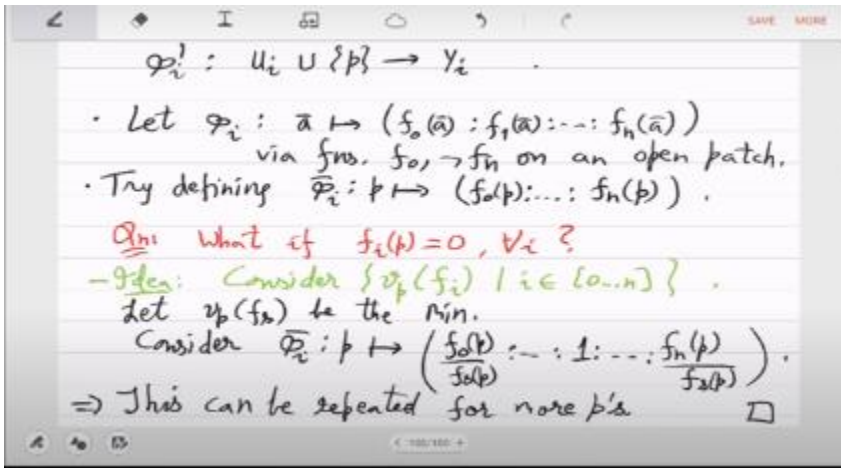 SAVE MORE
φ̄_i : U_i ∪ {p} → Y_i .
· Let φ_i : ā ↦ (f_0(ā) : f_1(ā) : --- : f_n(ā))
via fns. f_0, ¬ f_n on an open patch.
· Try defining φ̄_i : p ↦ (f_0(p): ... : f_n(p)) .
Qn: What if f_i(p) = 0, ∀i ?
- Idea: Consider {v_p(f_i) | i ∈ [0...n]} .
Let v_p(f_s) be the min.
Consider φ̄_i : p ↦ (f_0(p)/f_s(p) : -- : 1 : -- : f_n(p)/f_s(p)) .
=> This can be repeated for more p's □
100/100